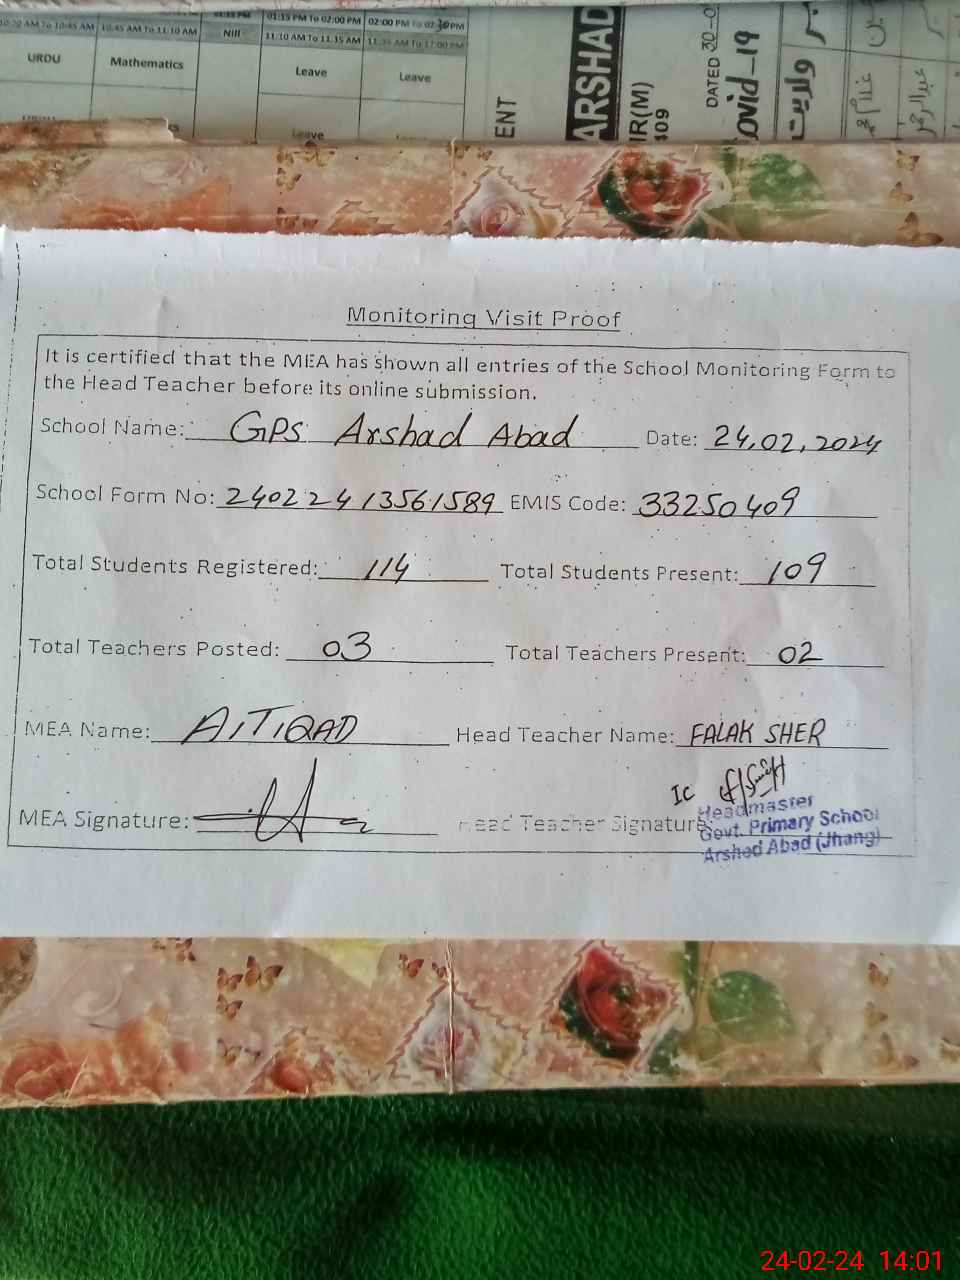 01:15 PM To 02:00 PM 02:00 PM
10:45 AM To 11:10 AM Nill 11:10 AM To 11:35 AM
URDU Mathematics Leave Leave
Leave
ENT
ARSHAD
IR(M)
409
DATED 30-0
ovid-19
ولایت
غلام
Monitoring Visit Proof
It is certified that the MEA has shown all entries of the School Monitoring Form to
the Head Teacher before its online submission.
School Name: GPS Arshad Abad Date: 24.02.2024
School Form No: 24022413561589 EMIS Code: 33250409
Total Students Registered: 114 Total Students Present: 109
Total Teachers Posted: 03 Total Teachers Present: 02
MEA Name: AITIQAD Head Teacher Name: FALAK SHER
Ic
MEA Signature: Head Teacher Signature:
Headmaster
Govt. Primary School
Arshed Abad (Jhang)
24-02-24 14:01